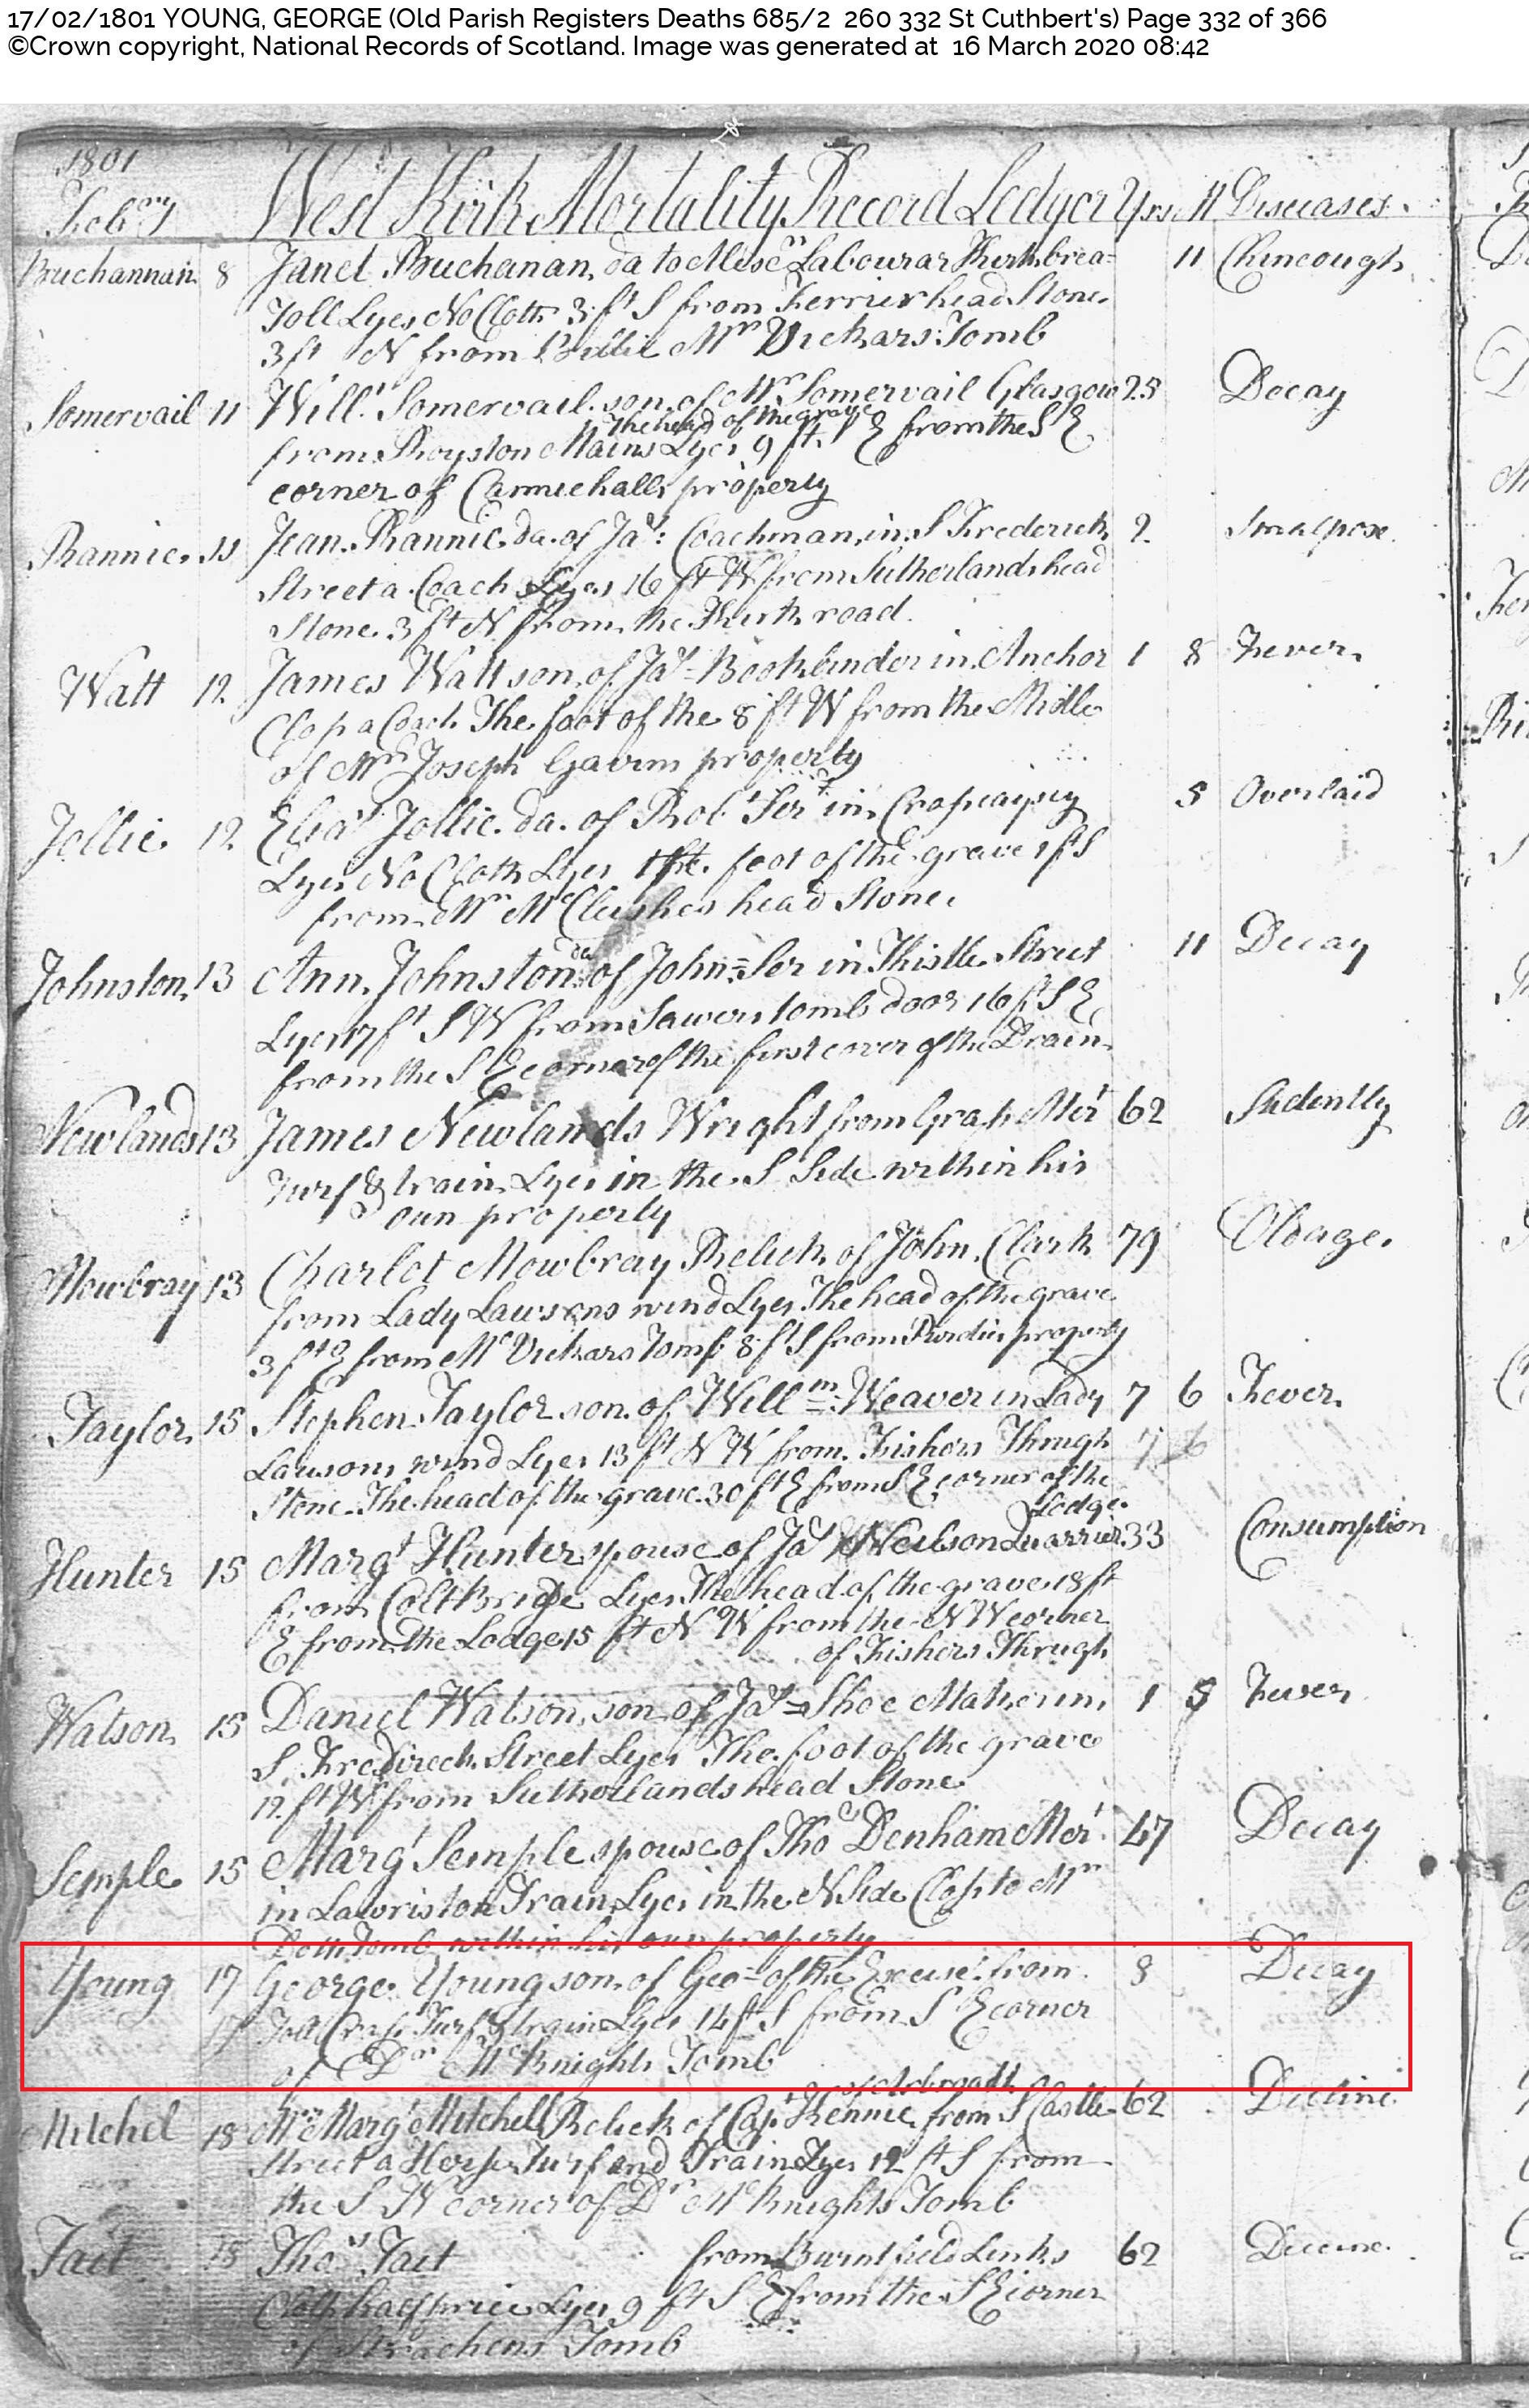 17/02/1801 YOUNG, GEORGE (Old Parish Registers Deaths 685/2 260 332 St Cuthbert's) Page 332 of 366
©Crown copyright, National Records of Scotland. Image was generated at 16 March 2020 08:42
1801
Feb^ry West Kirk Mortality Record Ledger Yrs M Diseases.
Buchannan 8 Janet Buchanan, da to Labourar 11 Chincough
Toll Lyes No Cloth 3 ft S from Ferriers head Stone
3 ft N from M^r Vickars Tomb
Somervail 11 Will^m Somervail son of M^r Somervail Glasgow 25 Decay
the head of the grave
from Royston Mains Lyes 9 ft E from the S E
corner of Carmichalls property
Rannie 11 Jean Rannie da. of Ja^s: Coachman in S Frederick 2 Smalpox
Street a Coach Lyes 16 ft W from Sutherlands head
Stone 3 ft N from the Kirk road.
Watt 12 James Watt son of Ja^s Bookbinder in Anchor 1 8 Fever
Closs a Coach The foot of the 8 ft W from the Midle
of M^r Joseph Gavin property
Jollie 12 Eliza^h Jollie da. of Rob^t Ser^t in 5 Overlaid
Lyes No Cloth Lyes the foot of the grave 1 ft S
from M^r M^cCleishes head Stone
da
Johnston 13 Ann Johnston of John Ser in Thistle Street 11 Decay
Lyes 17 ft S W from Sawers tomb door 16 ft S E
from the S E corner of the first cover of the Drain
Newlands 13 James Newlands Wright from Grass Mer^t 62 Sudently
Turf & train Lyes in the S Side within his
oun property
Mowbray 13 Charlot Mowbray Relick of John Clark 79 Oldage
from Lady Lawsons wind Lyes The head of the grave
3 ft E from M^c Vickars Tomb 8 ft S from Purdies property
Taylor 15 Stephen Taylor son of Will^m Weaver in Lady 7 6 Fever
Lausons wind Lyes 13 ft N W from Fishers Through 7 6
Stone The head of the grave 30 ft E from S E corner of the
Lodge
Hunter 15 Marg^t Hunter spouse of Ja^s Neilson Quarrier 33 Consumption
from Coltbridge Lyes The head of the grave 18 ft
E from the Lodge 15 ft N W from the N W corner
of Fishers Through
Watson 15 Daniel Watson son of Ja^s Shoe Maker in 1 5 Fever
S Fredireck Street Lyes The foot of the grave
12 ft W from Sutherlands head Stone
Semple 15 Marg^t Semple spouse of Tho^s Denham Mer^t 47 Decay
in Lawriston Train Lyes in the N Side Closs to M^r
Tomb within his oun property
Young 17 George Young son of Geo of the Excise from 8 Decay
17 Toll Cross Turf & train Lyes 14 ft S from S E corner
of D^r M^cKnights Tomb
of Arbroath
Mitchel 18 M^rs Marg^t Mitchell Relick of Cap^t Rennie from S Castle 62 Decline
Street a Horse Turf and Train Lyes 12 ft S from
the S W corner of D^r M^cKnights Tomb
Tait 18 Tho^s Tait from Burntfield Links 62 Decline
Cloth half price Lyes 9 ft S E from the S E corner
of Strachens Tomb